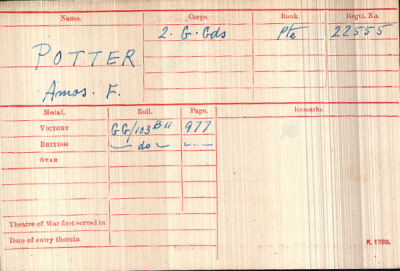 Name. Corps. Rank. Regtl. No.
POTTER 2. G. Gds Pte 22555
Amos. F.
Medal. Roll. Page. Remarks.
VICTORY GG/103 B11 977
BRITISH — do — — " —
STAR
Theatre of War first served in
Date of entry therein
K. 1380.